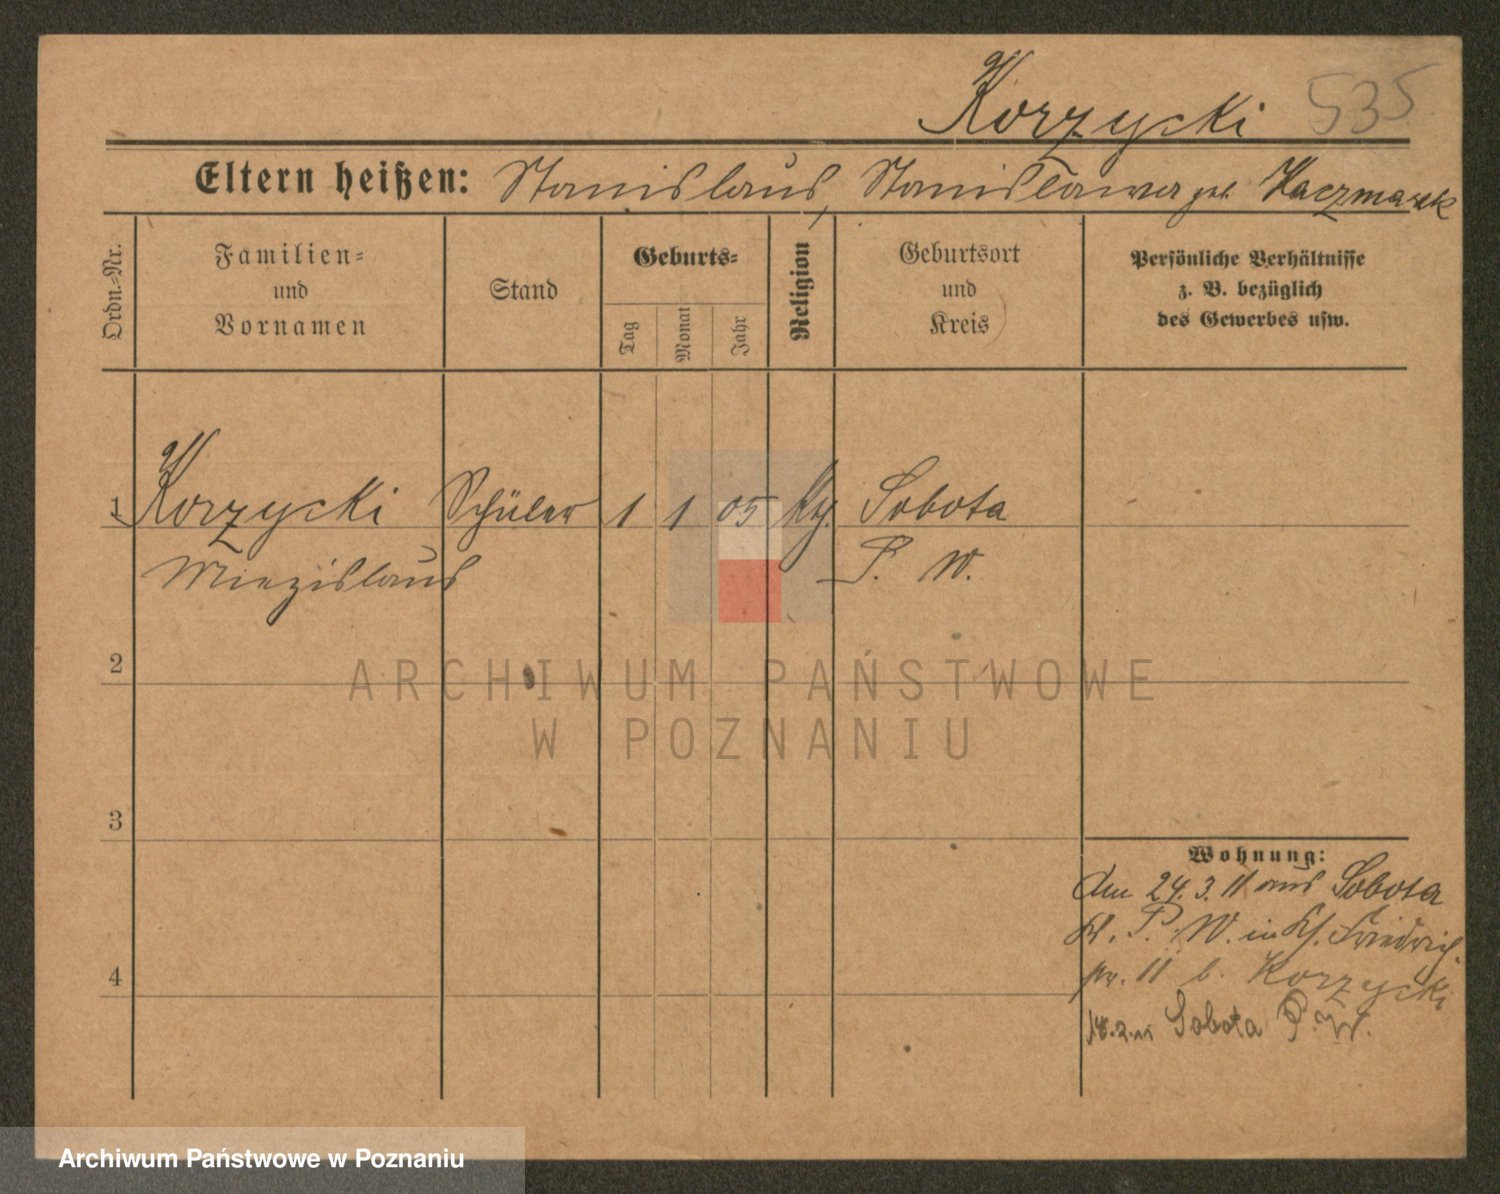 Korzycki 535
Eltern heißen: Stanislaus, Stanislawa geb. Kaczmarek
Ordn.-Nr.
Familien-
und
Vornamen
Stand
Geburts-
Tag
Monat
Jahr
Religion
Geburtsort
und
Kreis
Persönliche Verhältnisse
z. B. bezüglich
des Gewerbes usw.
1 Korzycki Schüler 1 1 05 kth. Sobota
Miezislaus P. W.
2
ARCHIWUM PAŃSTWOWE
W POZNANIU
3
Wohnung:
Am 24.3.11 aus Sobota
Kr. P. W. in Friedrich
11 b. Korzycki
4
Sobota P. W.
Archiwum Państwowe w Poznaniu